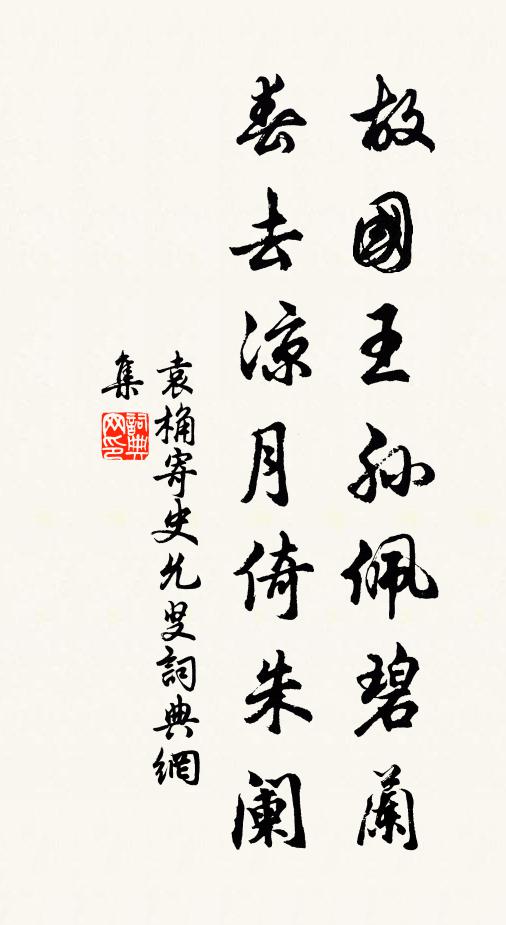 故國王孫佩碧蘭
春去涼月倚朱闌
袁桷寄史允叟詞典網
集
詞典網印